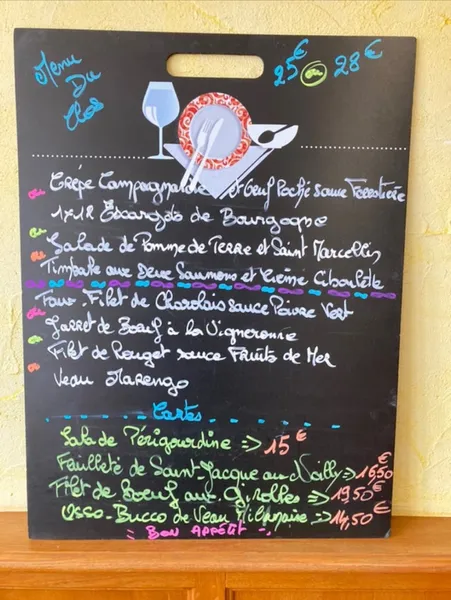 Menu Du Clos
25€ ou 28€
Crêpe Campagnarde et Oeuf Poché sauce Forestière
ou 1x12 Escargots de Bourgogne
ou Salade de Pomme de Terre et Saint Marcellin
ou Timbale aux Deux Saumons et Crème Ciboulette
Faux-Filet de Charolais sauce Poivre Vert
ou Jarret de Boeuf à la Vigneronne
ou Filet de Rouget sauce Fruits de Mer
ou Veau Marengo
Cartes
Salade Périgourdine => 15€
Feuilleté de Saint-Jacque au Noilly => 16,50€
Filet de Boeuf aux Girolles => 19,50€
Osso-Bucco de Veau Milanaise => 14,50€
Bon Appétit